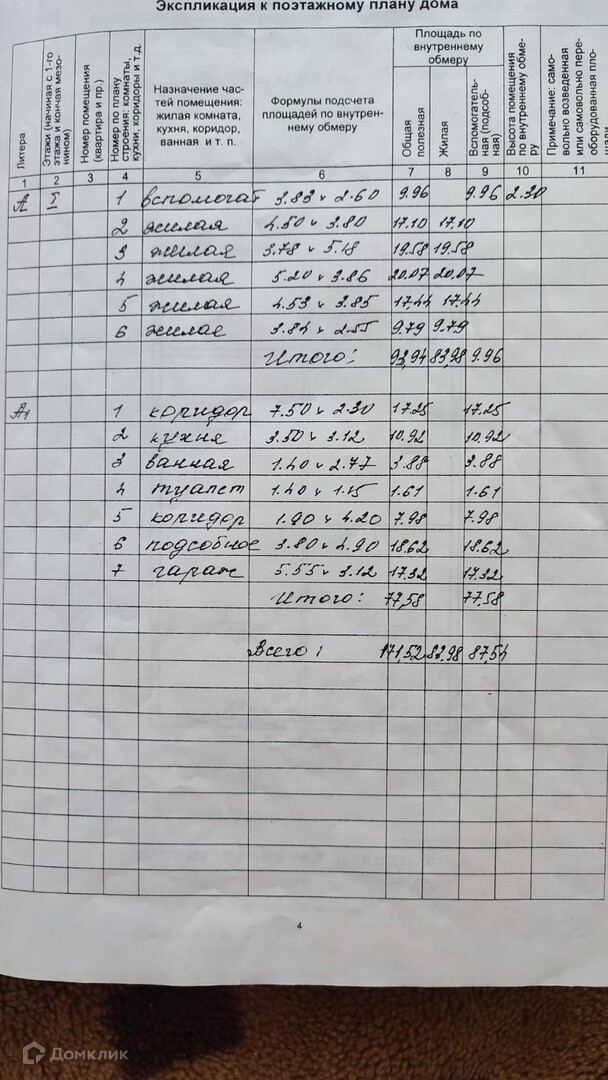 Экспликация к поэтажному плану дома
Литера
Этажи (начиная с 1-го этажа и кончая мезонином)
Номер помещения (квартира и пр.)
Номер по плану строения: комнаты, кухни, коридоры и т.д.
Назначение час-
тей помещения:
жилая комната,
кухня, коридор,
ванная и т. п.
Формулы подсчета
площадей по внутрен-
нему обмеру
Площадь по
внутреннему
обмеру
Общая полезная
Жилая
Вспомогатель-
ная (подсоб-
ная)
Высота помещения
по внутреннему обме-
ру
Примечание: само-
вольно возведенная
или самовольно пере-
оборудованная пло-
щади
1 2 3 4 5 6 7 8 9 10 11
А I 1 вспомогат 3.83 х 2.60 9.96 9.96 2.30
2 жилая 4.50 х 3.80 17.10 17.10
3 жилая 3.78 х 5.18 19.58 19.58
4 жилая 5.20 х 3.86 20.07 20.07
5 жилая 4.53 х 3.85 17.44 17.44
6 жилае 3.84 х 2.55 9.79 9.79
Итого: 93,94 83,98 9.96
А1 1 коридор 7.50 х 2.30 17.25 17.25
2 кухня 3.50 х 3.12 10.92 10.92
3 ванная 1.40 х 2.77 3.88 3.88
4 туалет 1.40 х 1.15 1.61 1.61
5 коридор 1.90 х 4.20 7.98 7.98
6 подсобное 3.80 х 4.90 18.62 18.62
7 гараж 5.55 х 3.12 17.32 17.32
Итого: 77,58 77,58
Всего: 171,52 83,98 87,54
4
Домклик